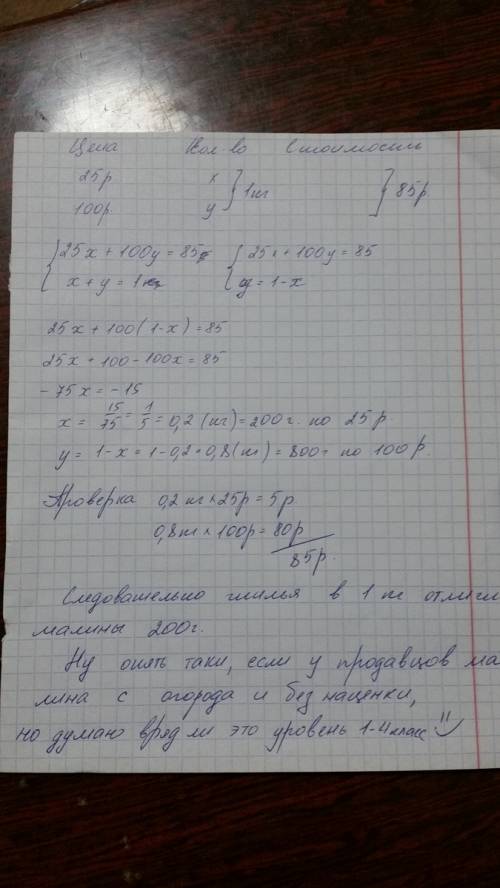 Цена Кол-во Стоимость
25р x } 1кг } 85р.
100р. y
{ 25x + 100y = 85 { 25x + 100y = 85
x + y = 1 y = 1-x
25x + 100(1-x) = 85
25x + 100 - 100x = 85
- 75x = -15
x = 15/75 = 1/5 = 0,2 (кг) = 200г. по 25р.
y = 1-x = 1-0,2 = 0,8(кг) = 800г по 100р.
Проверка 0,2 кг × 25р = 5р.
0,8кг × 100р = 80р
85р.
Следовательно гнилья в 1 кг
малины 200г.
Ну опять таки, если у продавцов ма
лина с огорода и без наценки,
но думаю вряд ли это уровень 1-4 класс